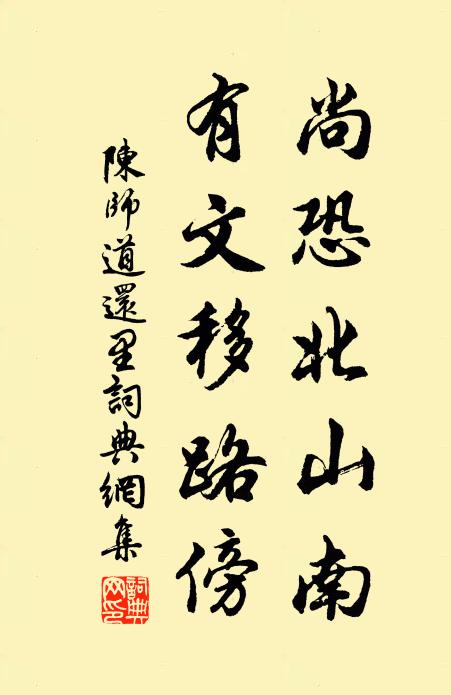 尚恐北山南
有文移路傍
陳師道還里詞典網集
詞典网印